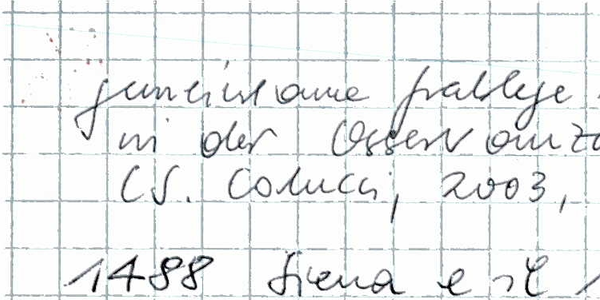 gemeinsame Grablege
in der Osservanza
(S. Colucci, 2003,
1488 Siena e il